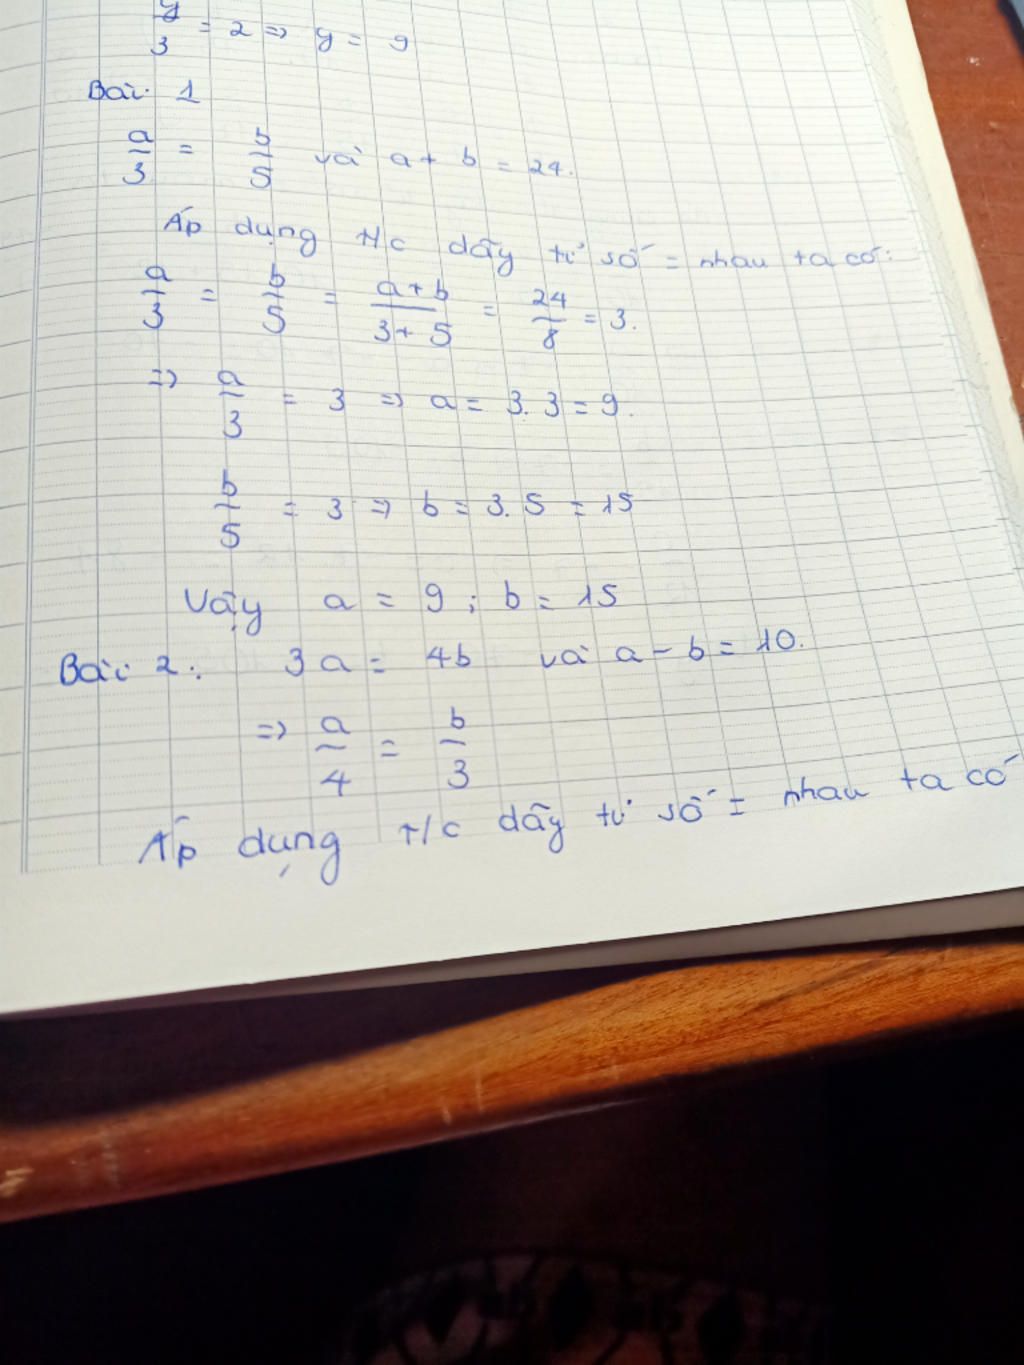 y/3 = 2 => y = 9
Bài 1
a/3 = b/5 và a + b = 24.
Áp dụng t/c dãy tỉ số = nhau ta có:
a/3 = b/5 = (a+b)/(3+5) = 24/8 = 3.
=> a/3 = 3 => a = 3.3 = 9.
b/5 = 3 => b = 3.5 = 15
Vậy a = 9; b = 15
Bài 2: 3a = 4b và a - b = 10.
=> a/4 = b/3
Áp dụng t/c dãy tỉ số = nhau ta có